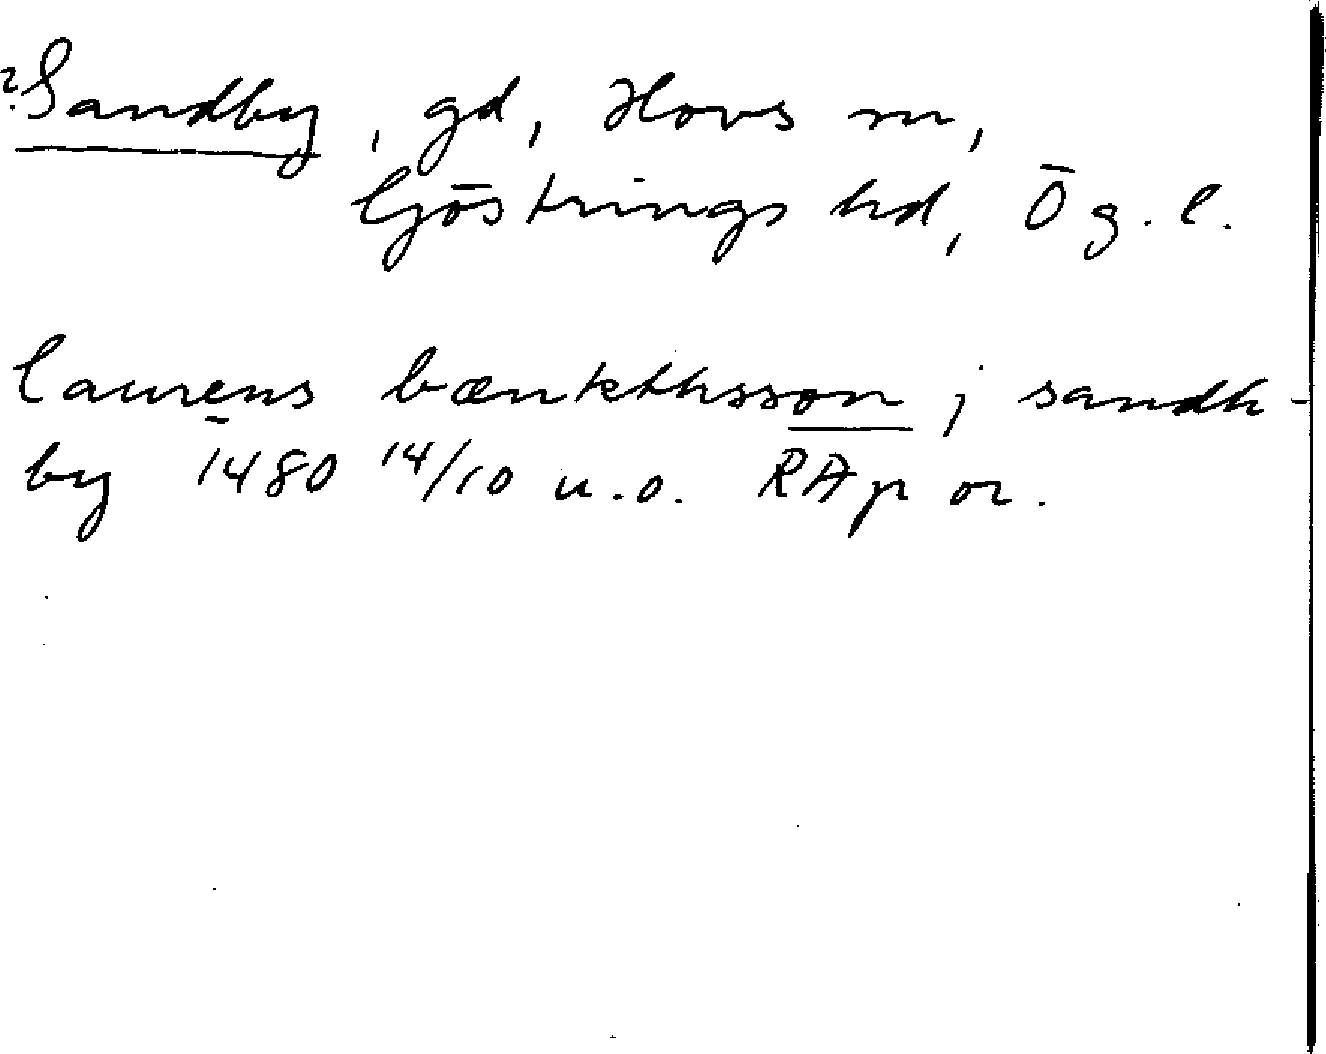 ?Sandby, gd, Hovs sn,
Göstrings hd, Ög. l.
laurens bænkthsson j sandh-
by 1480 14/10 u.o. RAp or.